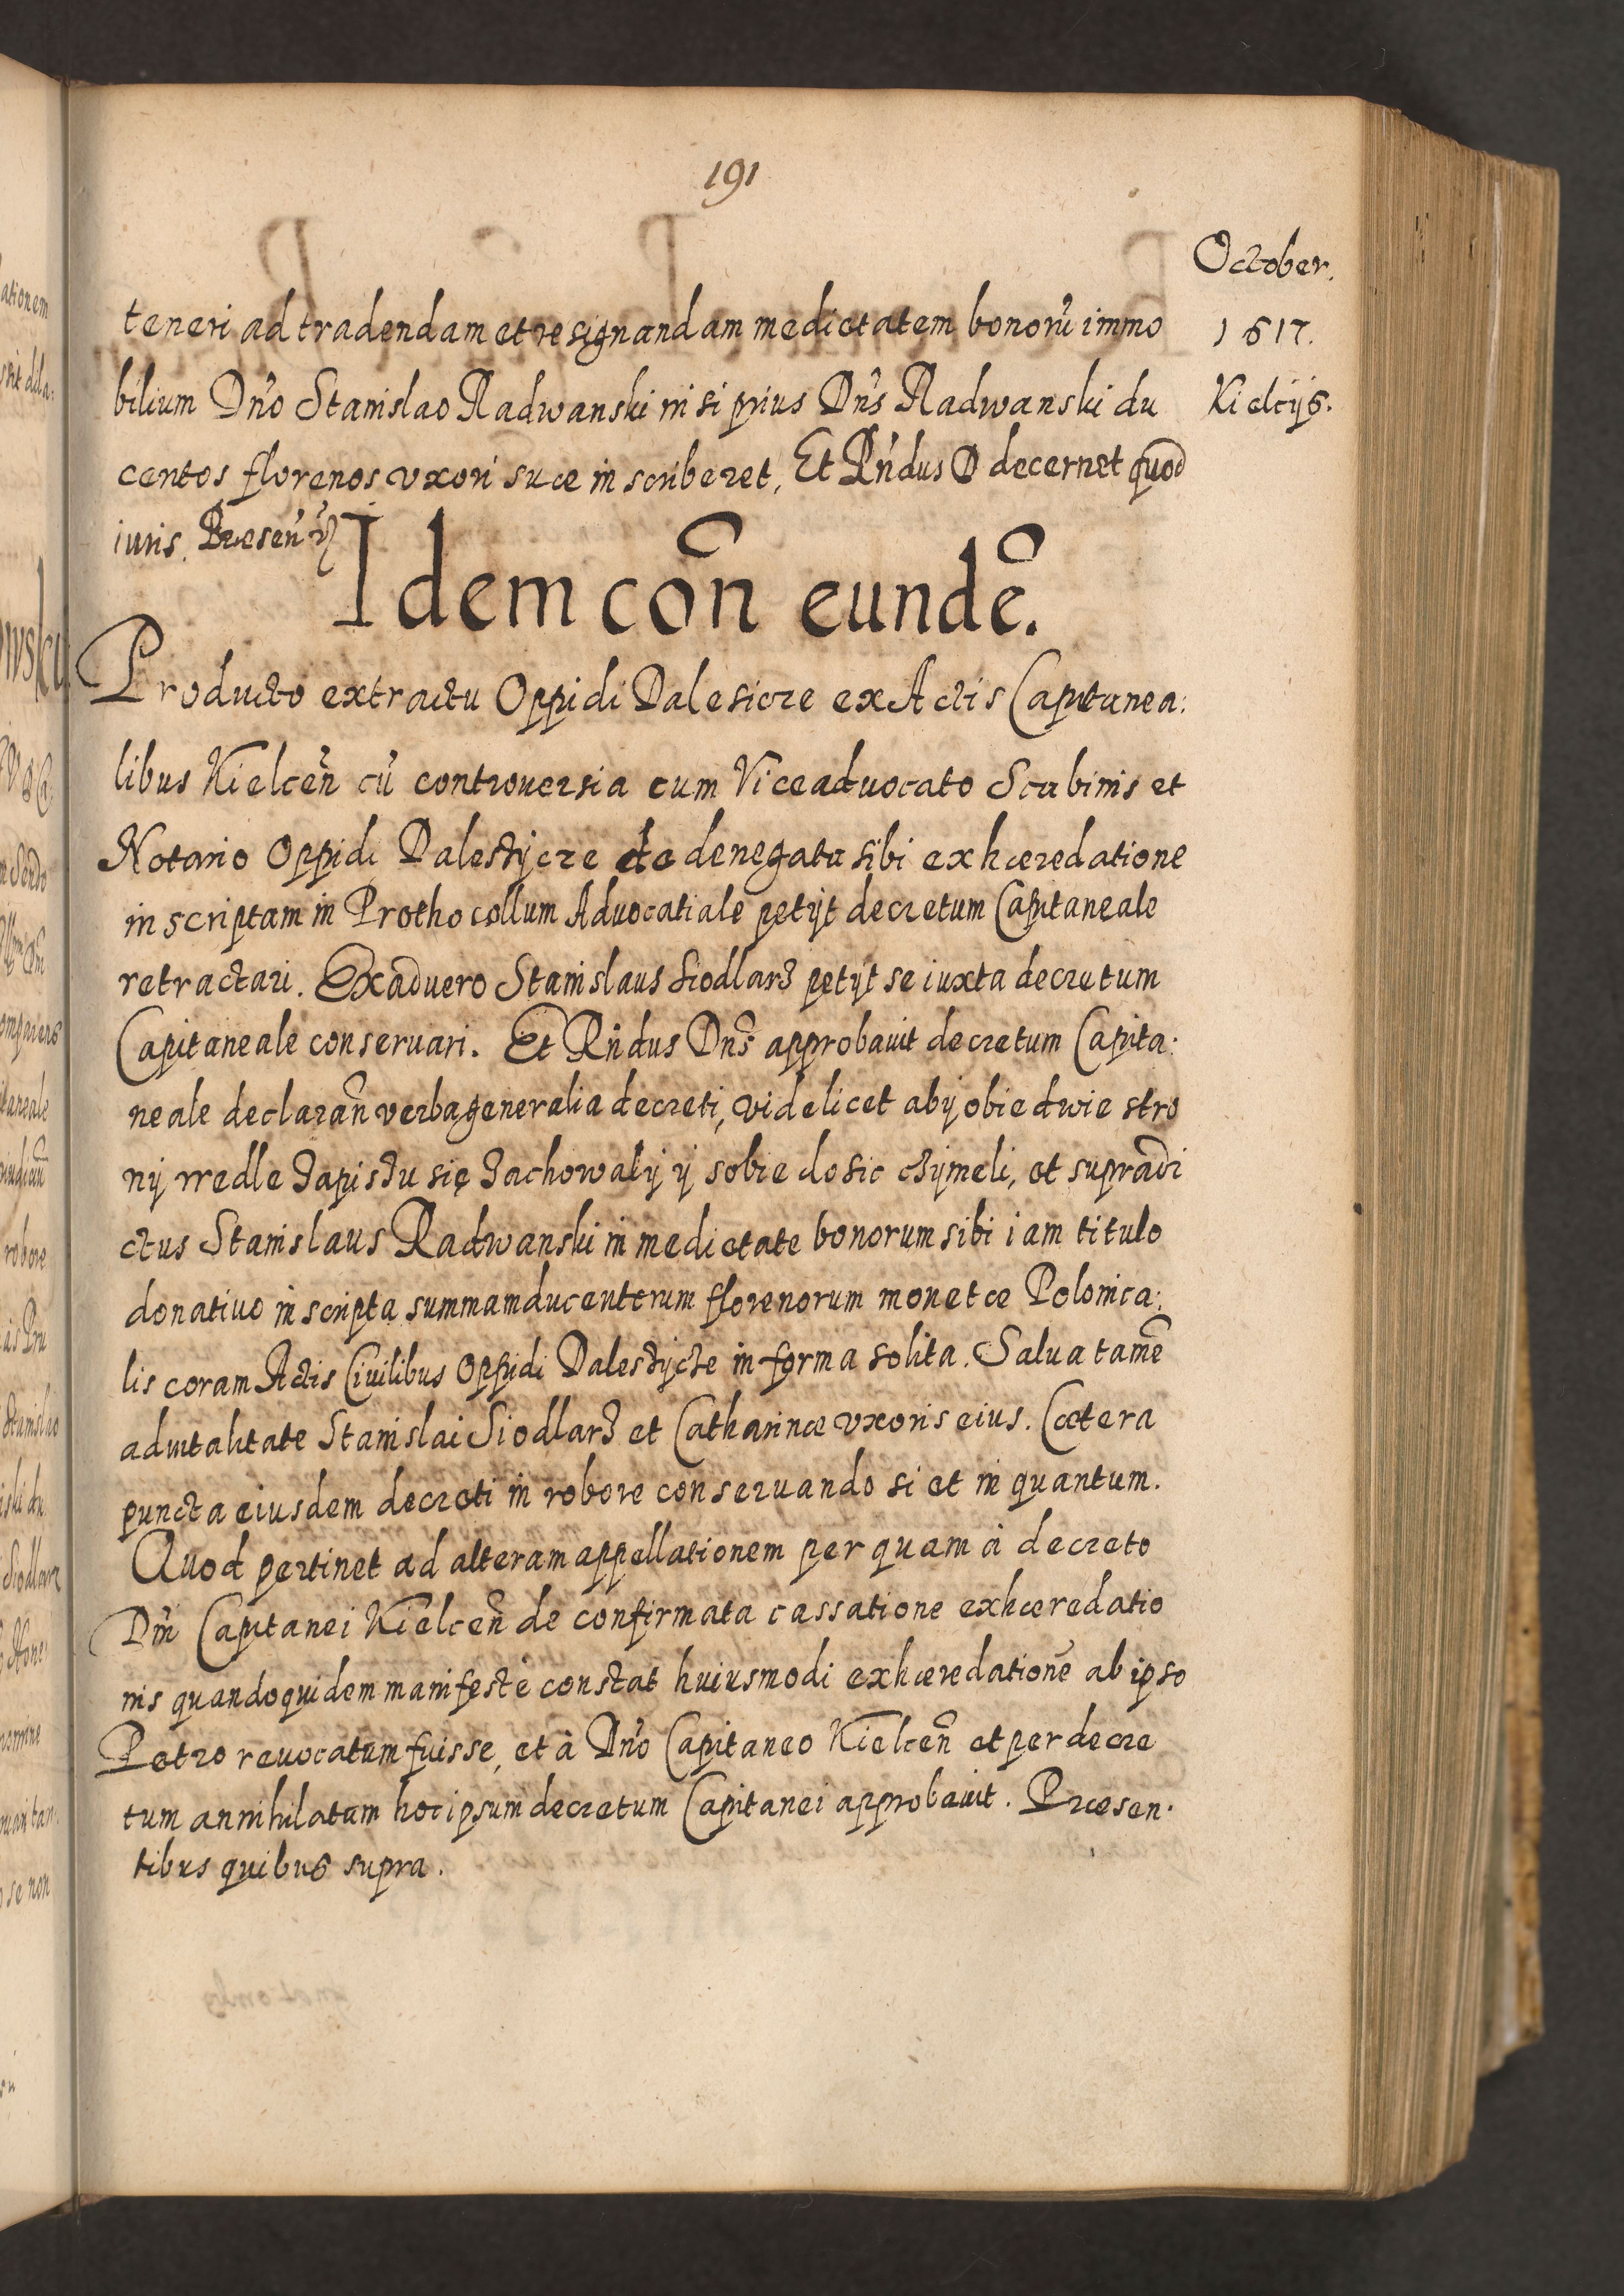 191
October.
1617.
Kielcijs.
teneri ad tradendam et resignandam medietatem bonorū immo
bilium Dn̄o Stanislao Radwanski nisi prius Dn̄s Radwanski du
centos florenos vxori suæ inscriberet, Et Rn̄dus D decernet quod
iuris. Præsen̄
Idem con̄ eundē.
Producto extractu Oppidi Dalesicze ex Actis Capitanea:
libus Kielcen̄ cū controuersia cum Viceaduocato Scabinis et
Notario Oppidi Daleszycze de denegata sibi exhæredatione
inscriptam in Prothocollum Aduocatiale petijt decretum Capitaneale
retractari. Exaduero Stanislaus Siodlarz petijt se iuxta decretum
Capitaneale conseruari. Et Rn̄dus Dn̄s approbauit decretum Capita:
neale declaran̄ verba generalia decreti, videlicet aby obiedwie stro
ny wedle zapiszu się zachowaly y sobie dosic czymeli, et supradi
ctus Stanislaus Radwanski in medietate bonorum sibi iam titulo
donatiuo inscripta summam ducentorum florenorum monetæ Polonica:
lis coram Actis Ciuilibus Oppidi Daleszycze in forma solita. Salua tamē
aduitalitate Stanislai Siodlarz et Catharinæ vxoris eius. Cætera
puncta eiusdem decreti in robore conseruando si et in quantum.
Quod pertinet ad alteram appellationem per quam à decreto
Dn̄i Capitanei Kielcen̄ de confirmata cassatione exhæredatio
nis quandoquidem manifestè constat huiusmodi exhæredationē ab ipso
Petro reuocatam fuisse, et à Dn̄o Capitaneo Kielcen̄ et per decre
tum annihilatam hoc ipsum decretum Capitanei approbauit. Præsen:
tibus quibus supra.